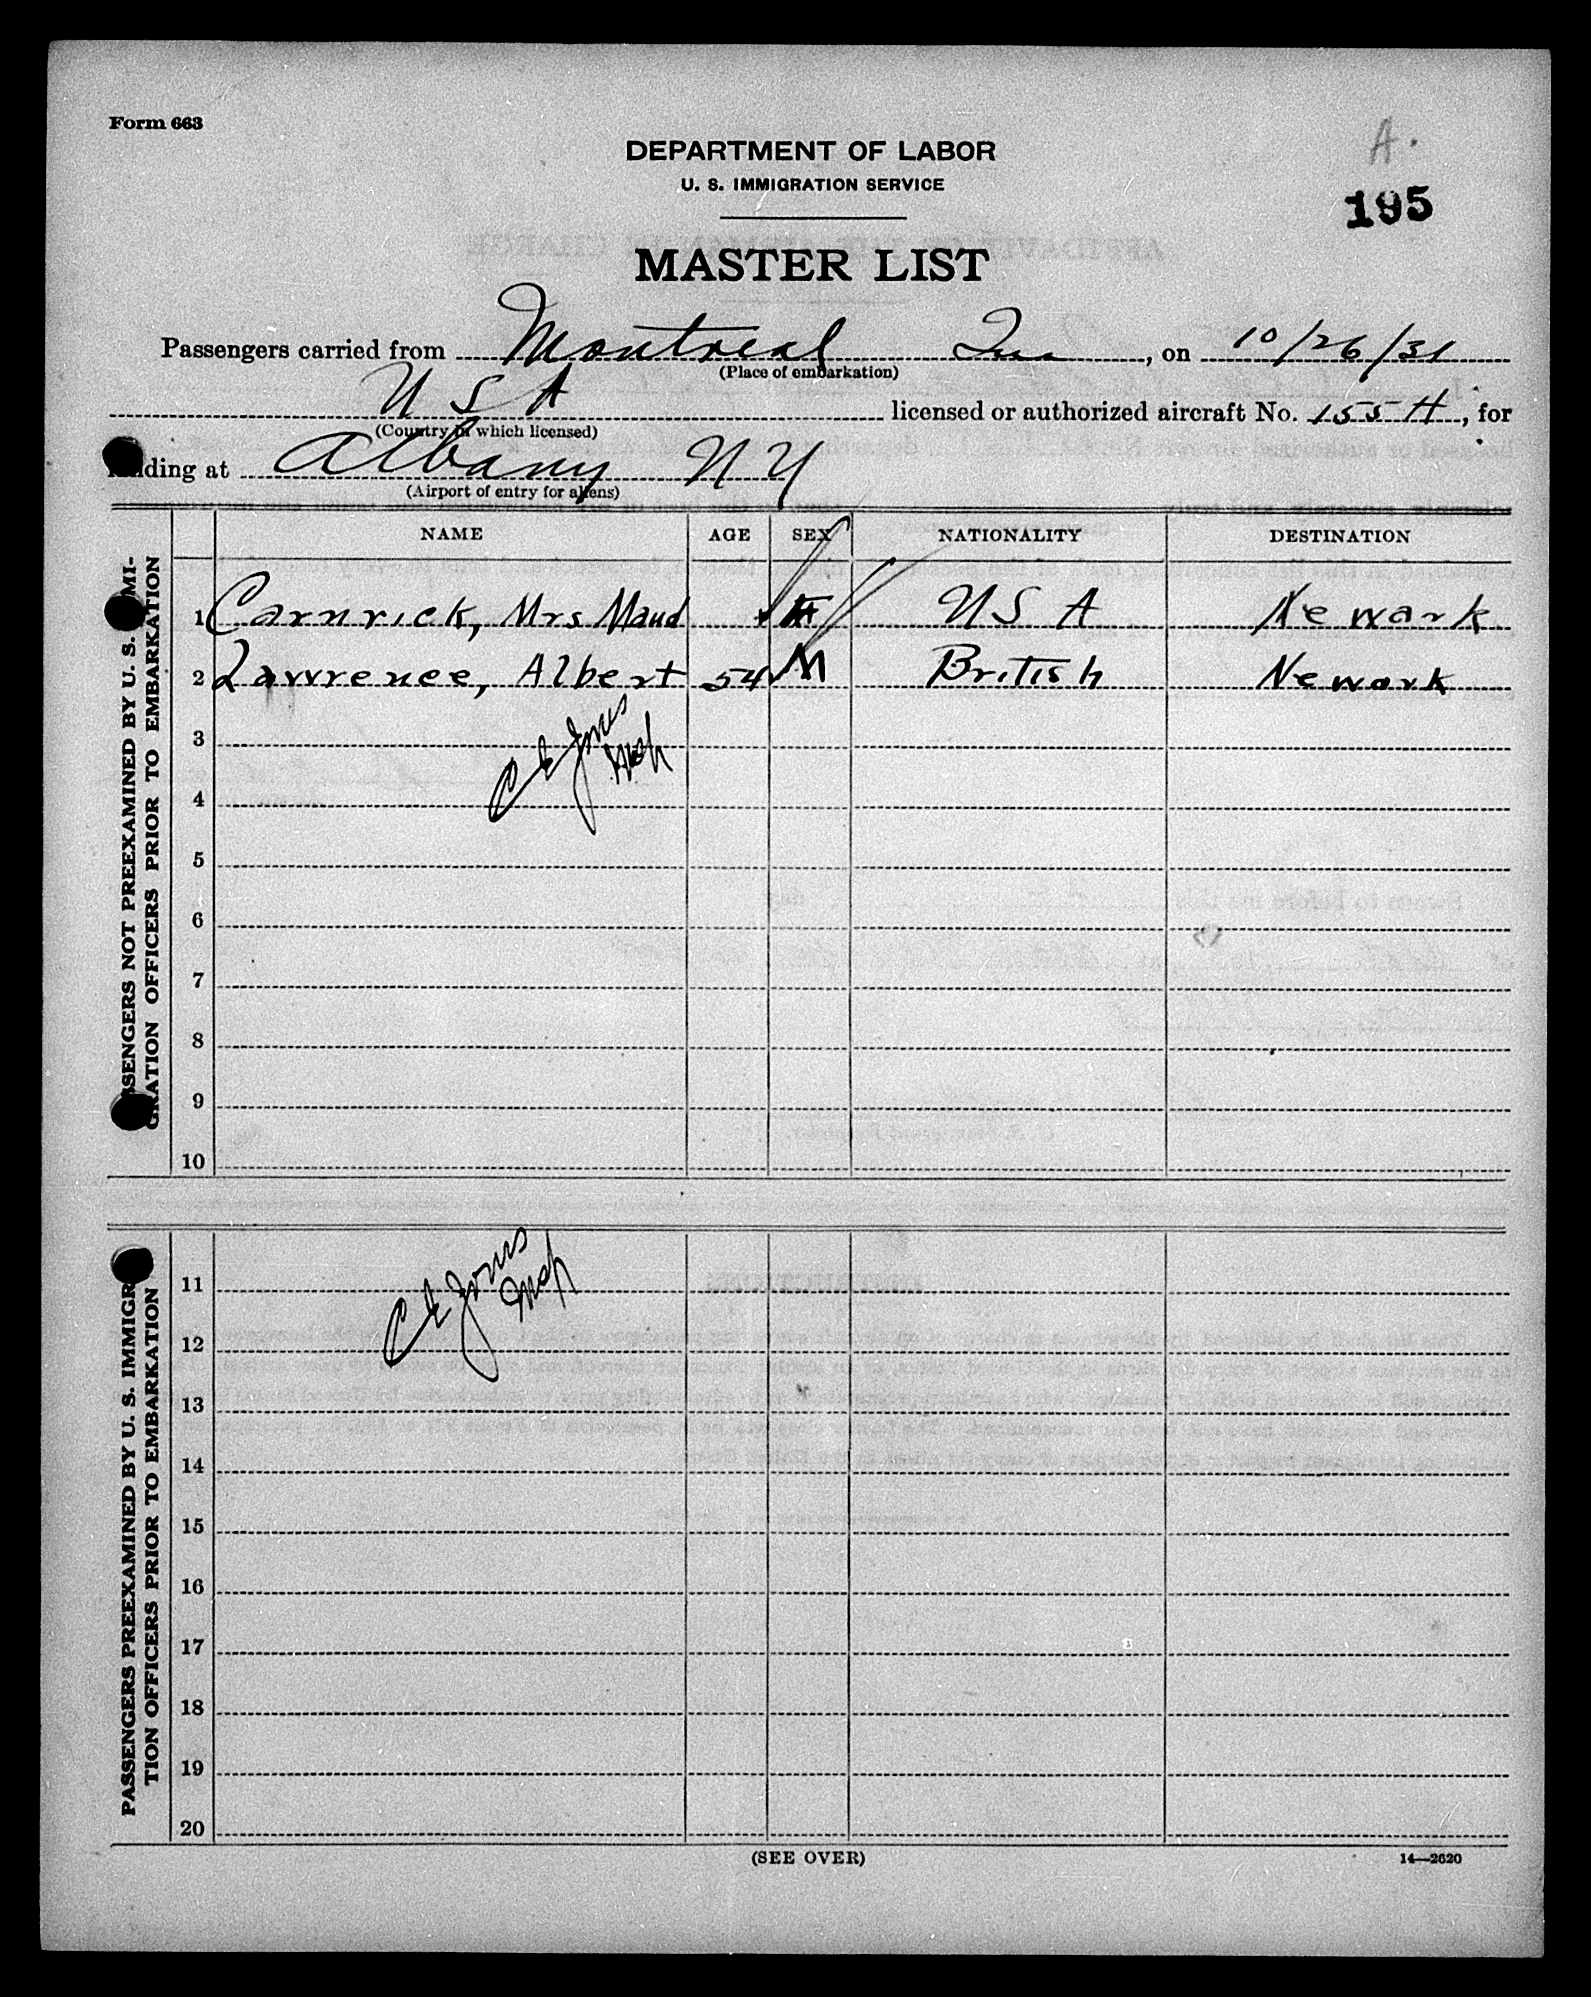 Form 663
A.
DEPARTMENT OF LABOR
U. S. IMMIGRATION SERVICE
195
MASTER LIST
Passengers carried from Montreal Que, on 10/26/31
(Place of embarkation)
U S A licensed or authorized aircraft No. 155 H, for
(Country in which licensed)
landing at Albany N Y
(Airport of entry for aliens)
NAME AGE SEX NATIONALITY DESTINATION
PASSENGERS NOT PREEXAMINED BY U. S. IMMI-
GRATION OFFICERS PRIOR TO EMBARKATION
1 Carnrick, Mrs Maud F U S A Newark
2 Lawrence, Albert 54 M British Newark
3
C E Jones
Insp
4
5
6
7
8
9
10
PASSENGERS PREEXAMINED BY U. S. IMMIGRA-
TION OFFICERS PRIOR TO EMBARKATION
C E Jones
Insp
11
12
13
14
15
16
17
18
19
20
(SEE OVER)
14—2620